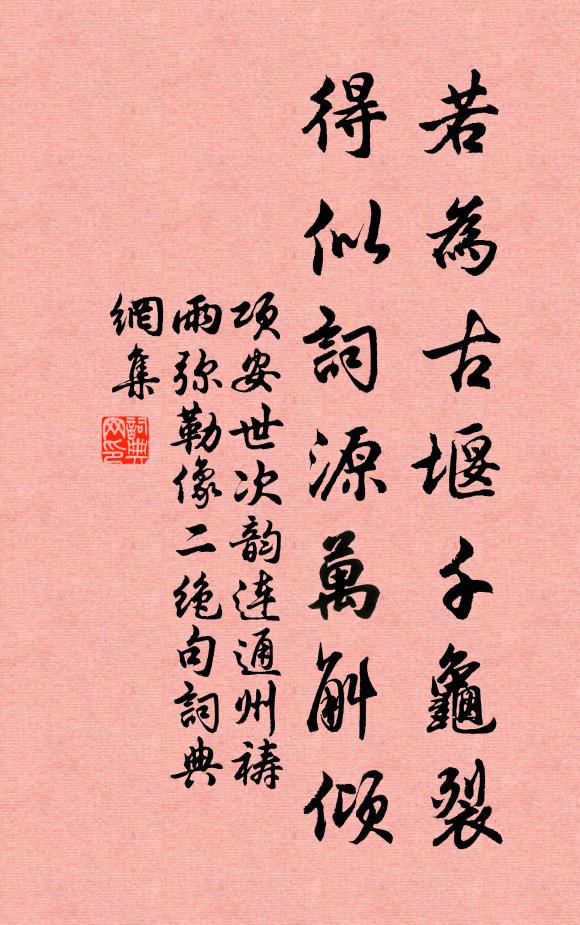 若為古堰千龜裂
得似詞源萬斛傾
项安世次韵连通州祷
雨弥勒像二绝句詞典
網集
詞典
网印